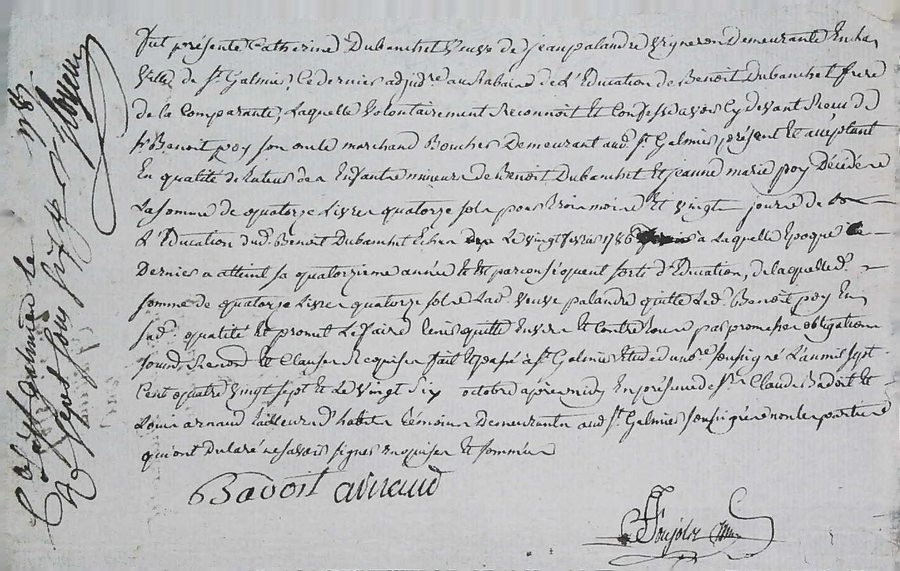 fut présente Catherine Dubanchet veuve de jean palandre vigneron Demeurante En la
Ville de St. Galmier, Ce dernier adjudre. au Rabaix de L'Education de Benoit Dubanchet frere
de la Comparante, Laquelle volontairement Reconnoit Et Confesse avoir Cy devant Recu de
sr. Benoit poy son oncle marchand Boucher Demeurant aud. St. Galmier, présent Et acceptant
En qualité de tuteur des Enfants mineurs de Benoit Dubanchet Et jeanne marie poy Décédés
La somme de quatorze Livres quatorze sols pour trois mois Et vingt jours de
L'Education dud. Benoit Dubanchet Echus Le vingt fevrier 1786 a Laquelle Epoque Ce
Dernier a atteint sa quatorzieme année Et Est par conséquent sorti d'Education, de laquelle d.
somme de quatorze Livres quatorze sols Lad. veuve palandre quitte Led. Benoit poy En
sad. qualité Et promet Le faire tenir quitte Envers Et Contre tous par promesses obligations
soumd. Renond. Et Clauses Requises fait Et passé a St. Galmier Etude du nre. soussigné L'an mil sept
Cent quatre vingt sept Et Le vingt six octobre après midi En présence de sr. Claude Badoit Et
Louis arnaud tailleur d'habits témoins Demeurants aud. St. Galmier soussignés non les parties
qui ont Déclaré ne savoir signer Enquises Et sommées
Badoit arnaud
1787